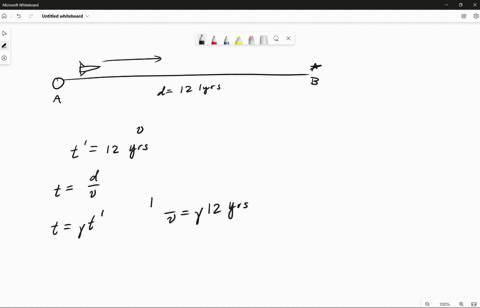 Microsoft Whiteboard
Untitled whiteboard
A
d = 12 lyrs
B
v
t' = 12 yrs
t = d/v
t = γt'
1
/v = γ 12 yrs
100%